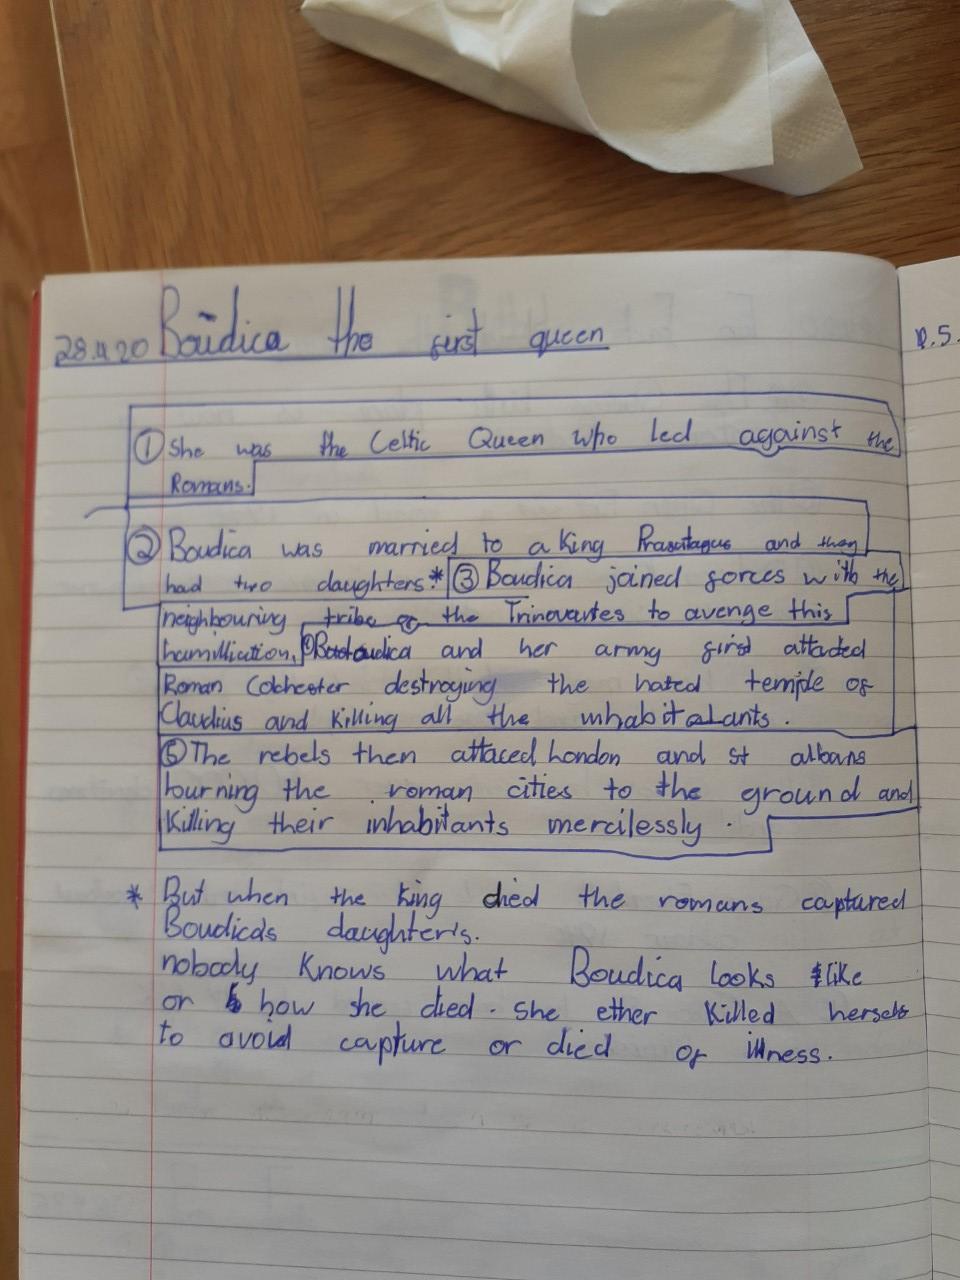 28.4.20 Boudica the first queen
① She was the Celtic Queen who led against the
Romans.
② Boudica was married to a King Prasutagus and they
had two daughters.* ③ Boudica joined forces with the
neighbouring tribe of the Trinovartes to avenge this
humilliation. Boudica and her army first attacted
Roman Colchester destroying the hated temple of
Claudius and killing all the inhabitatants.
⑤ The rebels then attaced London and St albans
burning the roman cities to the ground and
Killing their inhabitants mercilessly.
* But when the king died the romans captured
Boudica's daughter's.
nobody Knows what Boudica looks like
or how she died. She ether Killed herself
to avoid capture or died of illness.